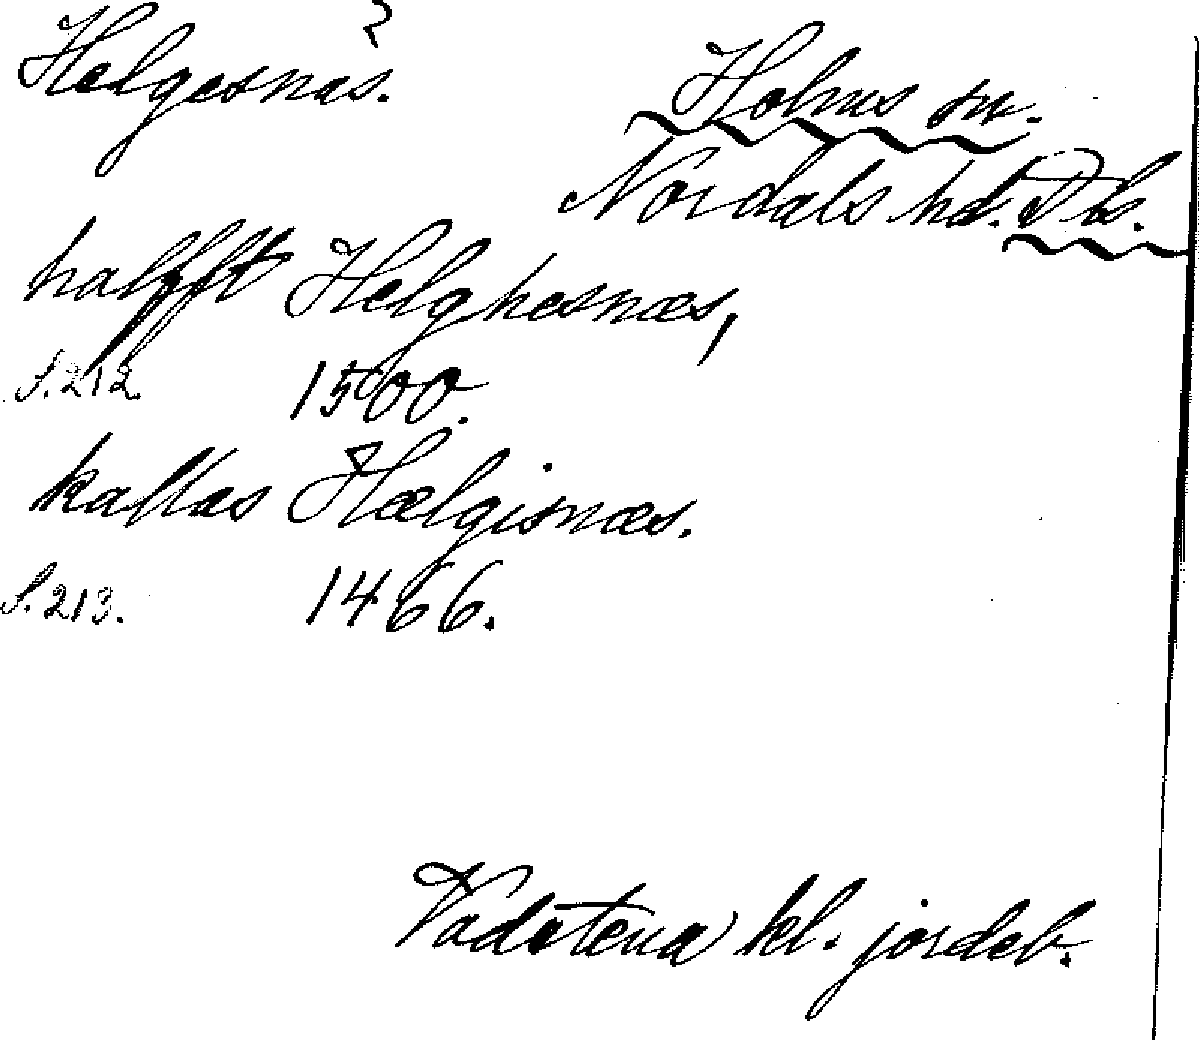 Helgesnäs.
Holms sn.
Nordals hd. Dls.
halfft Helghesnæs,
S. 212. 1500.
kallas Hælgisnæs.
S. 213. 1466.
Vadstena kl. jordeb.